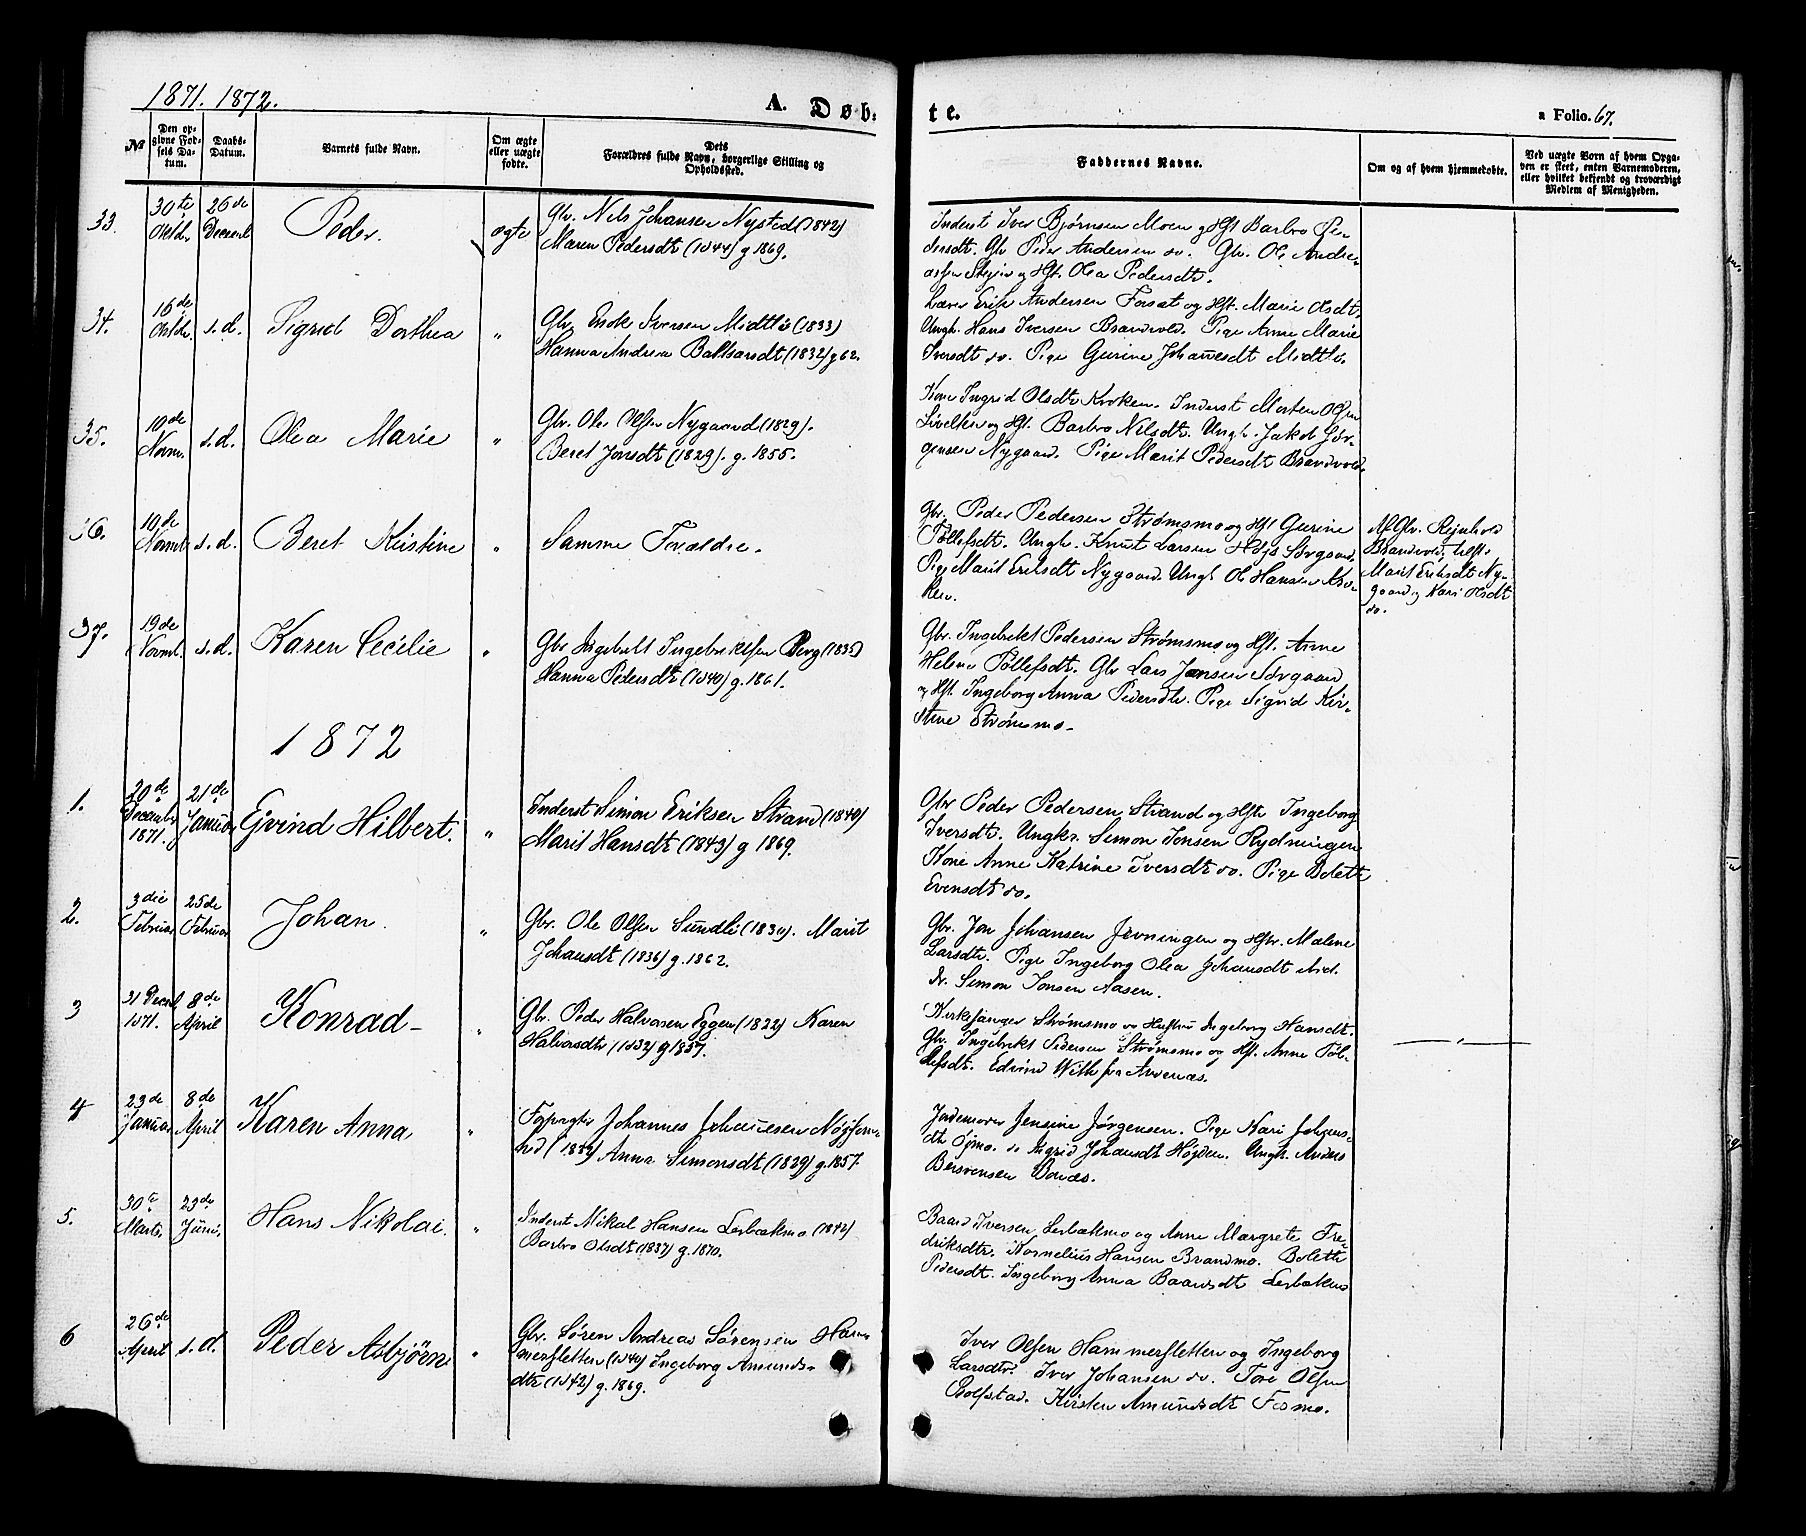 1871. 1872.
A. Døb-
te.
a Folio. 67.
No
Den op-
givne Fød-
sels Da-
tum.
Daabs-
Datum.
Barnets fulde Navn.
Om ægte
eller uægte
fødte.
Dets
Forældres fulde Navn, borgerlige Stilling og
Opholdssted.
Faddernes Navne.
Om og af hvem hjemmedøbte.
Ved uægte Børn af hvem Opga-
ven er skeet, enten Barnemoderen,
eller hvilket bekjendt og troværdigt
Medlem af Menigheden.
33.
30te
Oktbr.
26de
Decemb
Peder.
ægte
Gbr. Nils Johansen Nysted (1842)
Maren Pedersdt (1844) g 1869.
Inderst Iver Bjørnsen Moen og Hst Barbro Pe-
dersdt. Gbr Peder Andersen do. Gbr. Ole Andre-
assen og Hst. Olea Pedersdt.
34.
16de
Oktbr.
s.d.
Sigrid Dorthea
"
Gbr. Enok Iversen Midtli (1833)
Hanna Andrea Baltsarsdt (1832) g 62.
Lærer Erik Andersen Forsæt og Hst. Marie Olsdt.
Ungk. Hans Iversen Brandvold. Pige Anne Marie
Iversdt do. Pige Gurine Johannesdt Midtli.
35.
10de
Novmb.
s.d.
Olea Marie
"
Gbr. Ole Olsen Nygaard (1829).
Beret Jonsdt (1829). g. 1855.
Kone Ingrid Olsdt Kroken. Inderst Morten Olsen
og Hst. Barbro Nilsdt. Ungk. Jakob Jør-
gensen Nygaard. Pige Marit Pedersdt Brandvold.
36.
10de
Novmb.
s.d.
Beret Kristine
"
Samme Forældre.
Gbr. Peder Pedersen Strømsmo og Hst Gurine
Tollefsdt. Ungk. Knut Larsen Sørgaard.
Pige Marit Eriksdt Nygaard. Ungk Ole Hansen Kro-
ken.
Af Gbr. Reinhold
Brandvold,
Marit Eriksdt Ny-
gaard og Kari Olsdt
do.
37.
19de
Novmb.
s.d.
Karen Cecilie
"
Gbr Ingebrikt Ingebriktsen Berg (1835)
Hanna Pedersdt (1840) g. 1861.
Gbr. Ingebrikt Pedersen Strømsmo og Hst. Anne
Helene Tollefsdt. Gbr Lars Jensen Sørgaard
og Hst. Ingeborg Anna Pedersdt. Pige Sigrid Kir-
stine Strømsmo.
1872
1.
20de
Decemb
1871.
21de
Januar
Ejvind Hilbert.
"
Inderst Simon Eriksen Strand (1840)
Marit Hansdt (1843) g 1869.
Gbr Peder Pedersen Strand og Hst Ingeborg
Iversdt. Ungk. Simon Jonsen Rydningen
Kone Anne Katrine Iversdt do. Pige Bolette
Evensdt do.
2.
3die
Februar
25de
Februar
Johan.
"
Gbr. Ole Olsen Sundli (1834). Marit
Johansdt (1836) g. 1862.
Gbr. Jon Johansen Jevningen og Hst. Malene
Larsdt. Pige Ingeborg Olea Johansdt
Simon Jonsen Aasen.
3
21 Decemb
1871.
8de
April
Konrad
"
Gbr. Peder Halvorsen Eggen (1822) Karen
Halvorsdt (1832) g 1857.
Kirkesanger Strømsmo og Hustru Ingeborg Hansdt.
Gbr. Ingebrikt Pedersen Strømsmo og Hst. Anne Tol-
lefsdt. Edvind With fra Andenæs.
4
23de
Januar
8de
April
Karen Anna
"
Johannes Johannesen
Anna Simonsdt (1829) g. 1857.
Jordemoder Jensine Jørgensen. Pige Kari Johans-
dt Ingrid Johansdt Højden. Ungk. Anders
Bersvensen Bonæs.
5.
30te
Marts.
23de
Juni.
Hans Nikolai.
"
Inderst Mikal Hansen Lerbækmo (1842)
Barbro Olsdt (1837) g. 1870.
Baard Iversen Lerbækmo og Anne Margrete Fre-
driksdt. Kornelius Hansen Brandmo. Bolette
Pedersdt. Ingeborg Anna Baardsdt Lerbækmo
6
26de
April
s.d.
Peder Asbjörn
"
Gbr. Søren Andreas Sørensen Ham-
mersletten (1840) Ingeborg Amunds-
dtr (1842) g. 1869.
Iver Olsen Hammersletten og Ingeborg
Larsdtr. Iver Johansen do. Tore Olsen
Rolfstad. Kirsten Amundsdt Fosmo.